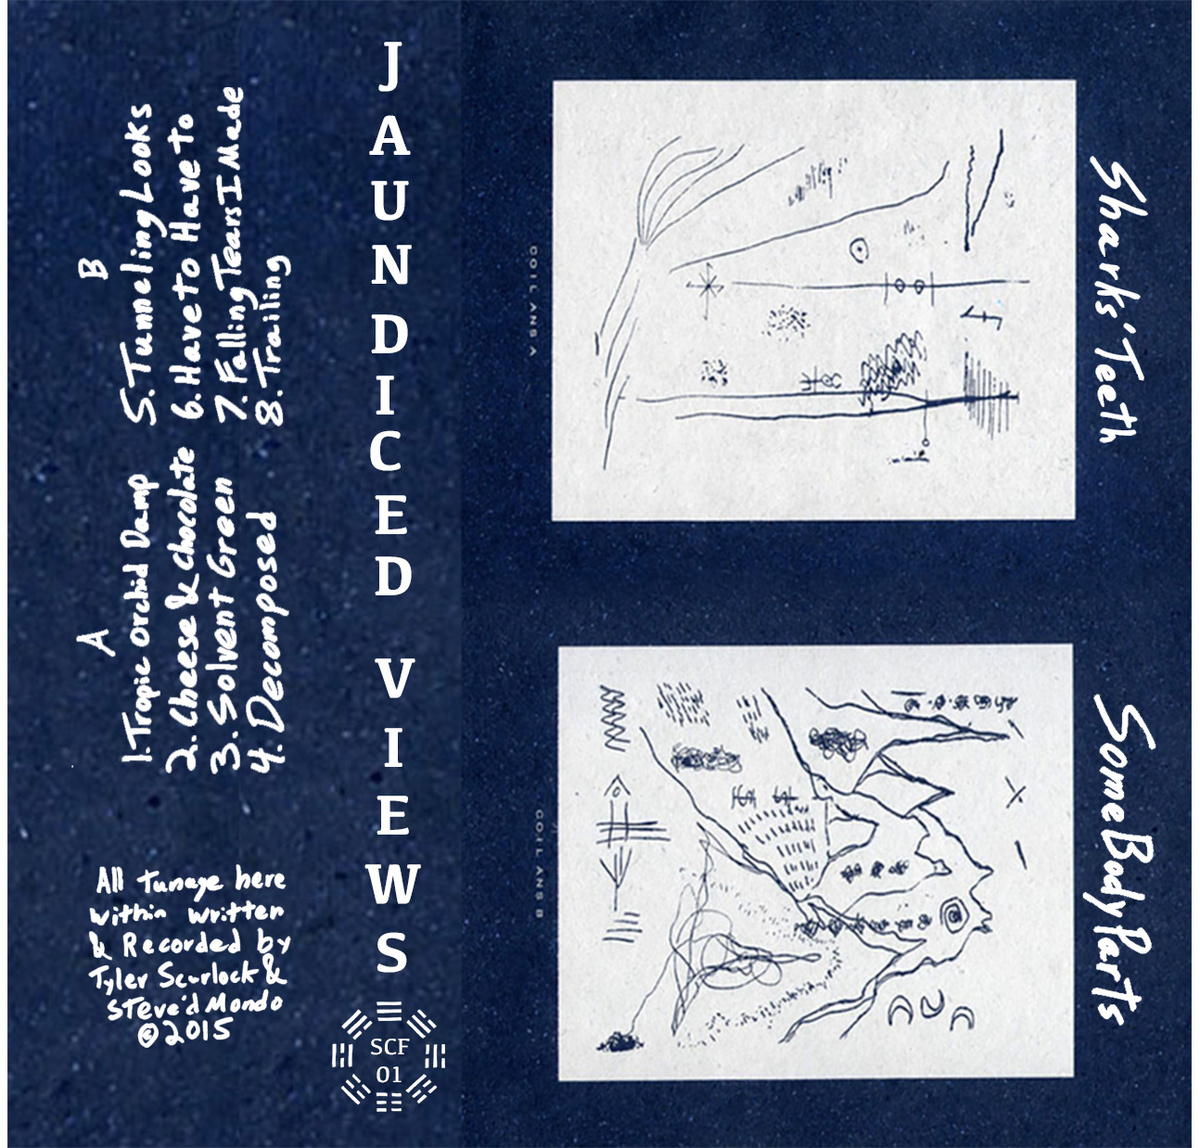 A
1.Tropic Orchid Damp
2.Cheese & Chocolate
3.Solvent Green
4.Decomposed
B
5.Tunneling Looks
6.Have to Have to
7.Falling Tears I Made
8.Trailing
All tunage here
within written
& Recorded by
Tyler Scurlock &
Steve'd Mondo
©2015
JAUNDICED VIEWS
SCF
01
COIL ANS A
Sharks' Teeth
COIL ANS B
Some Body Parts